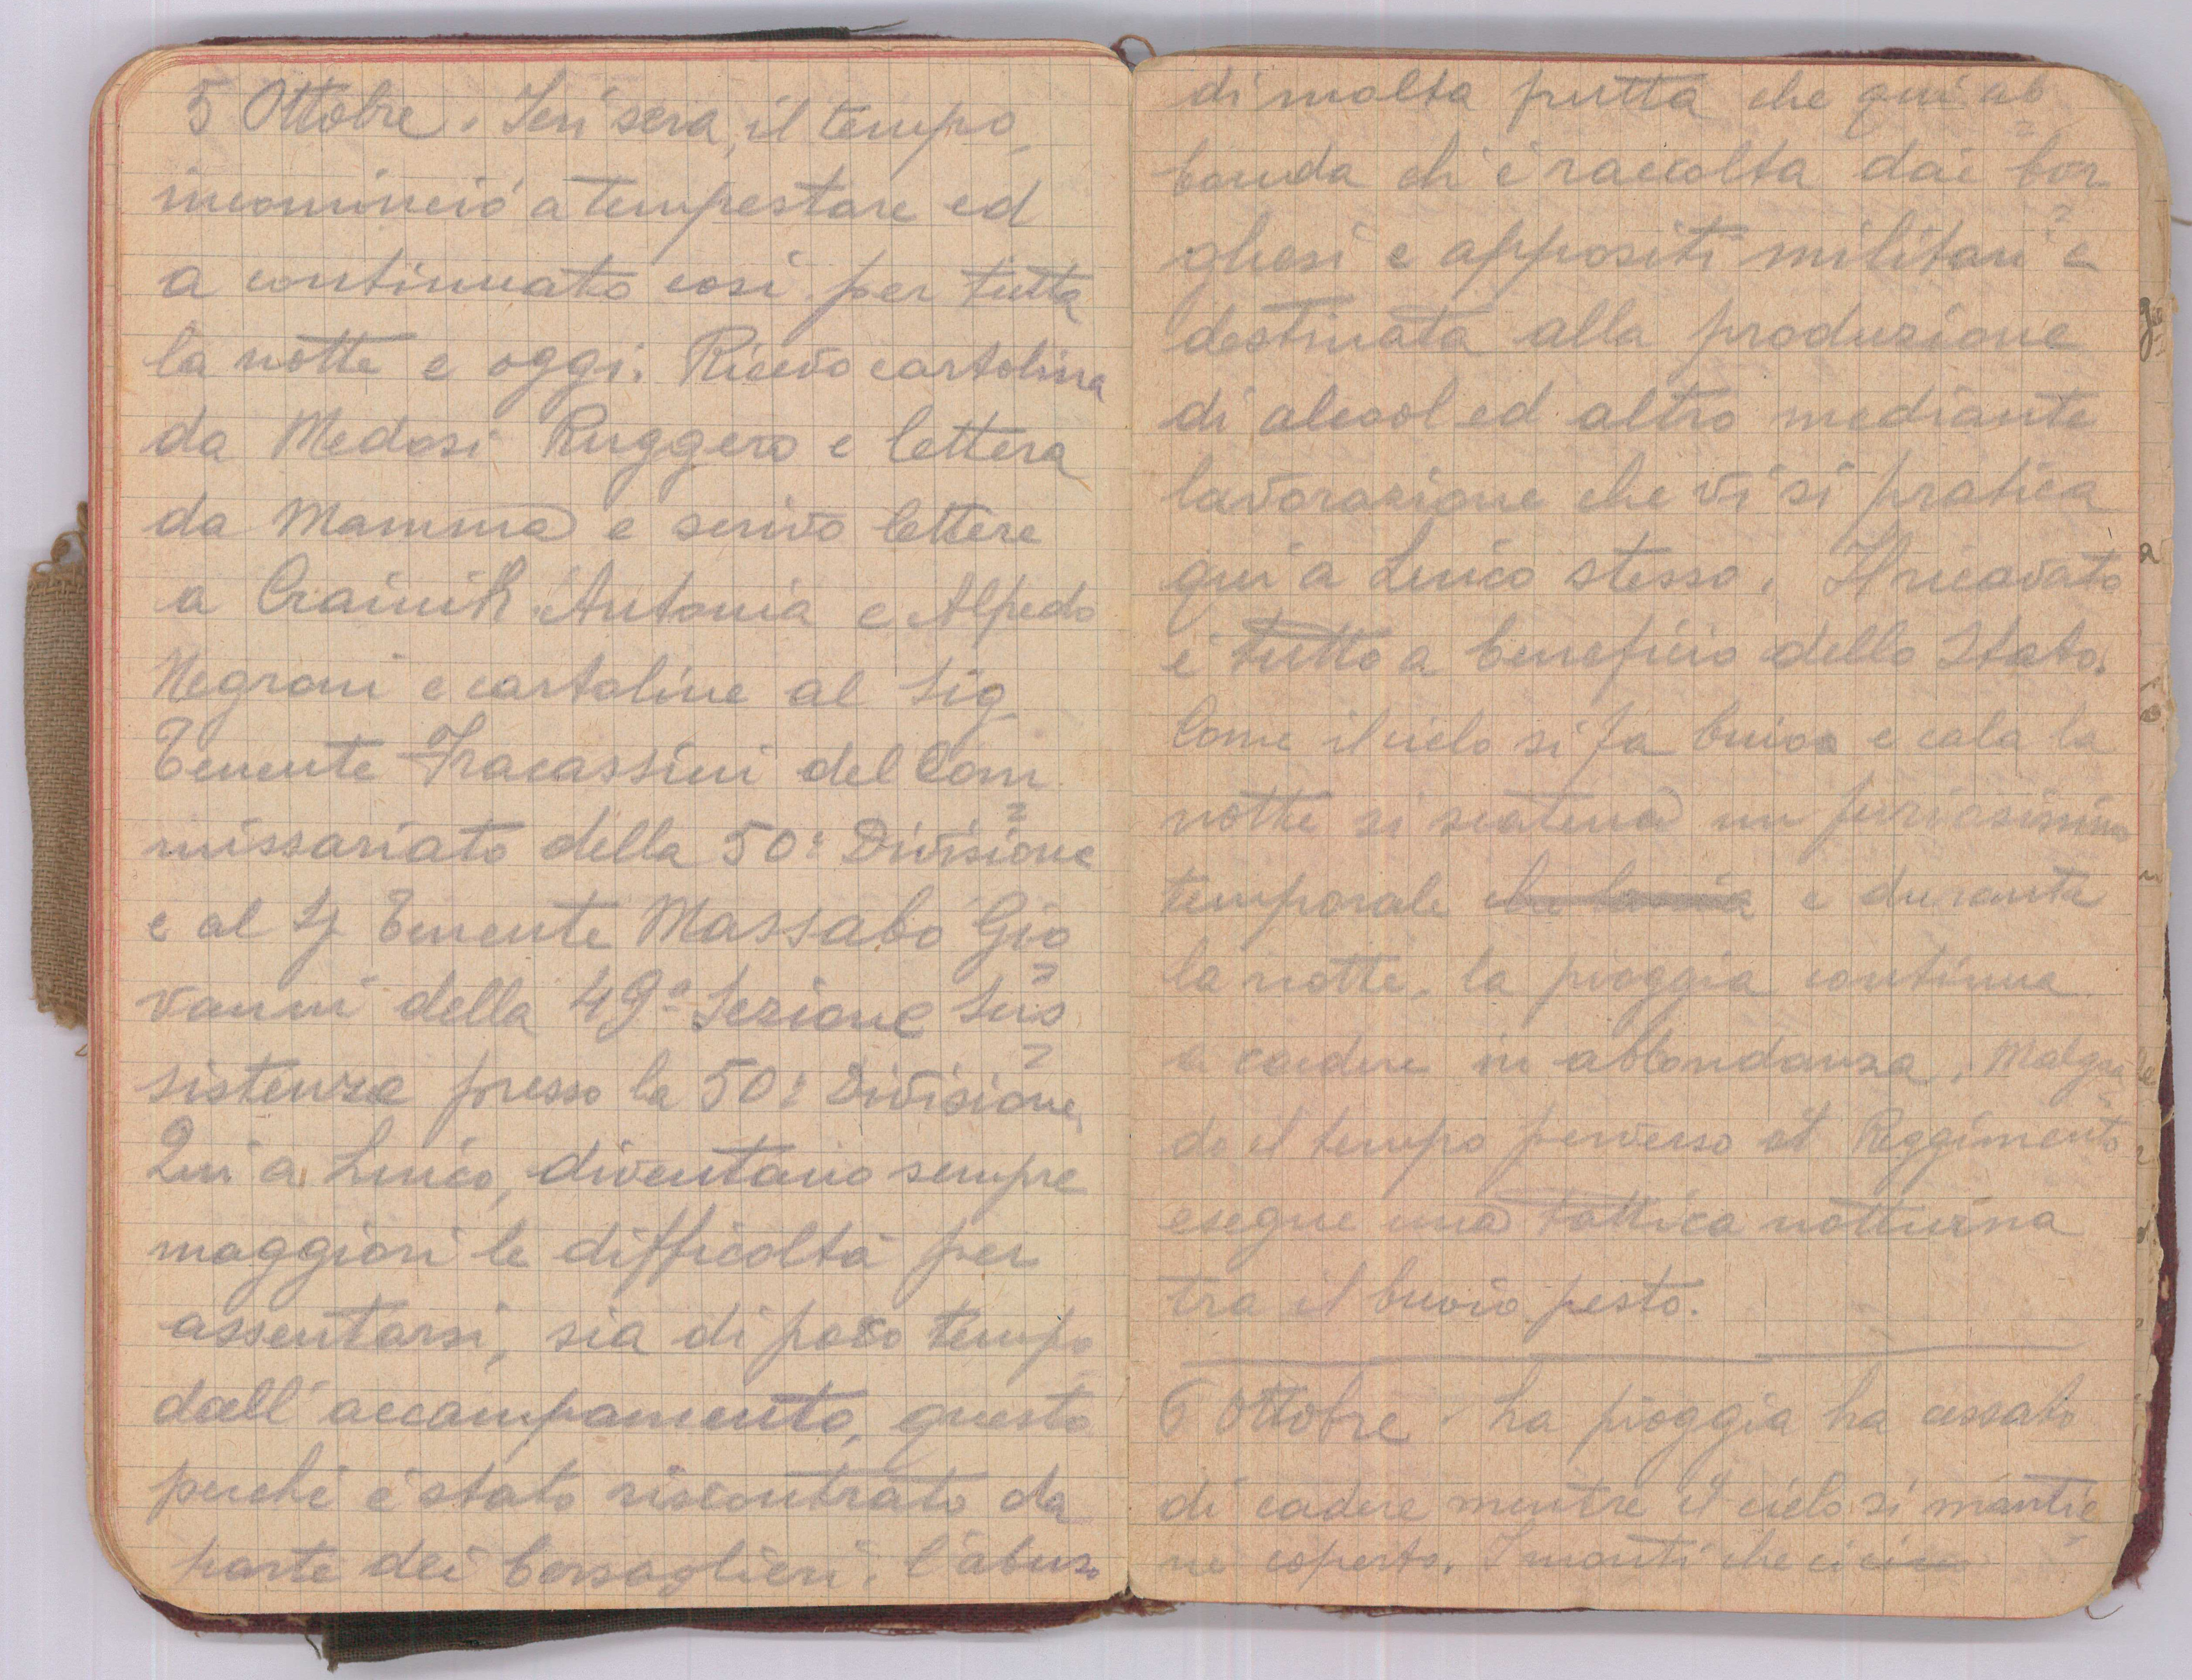 5 Ottobre. Ieri sera, il tempo,
incominció a tempestare ed
a continuato cosi per tutta
la notte e oggi. Ricevo cartolina
da Medosi Ruggero e lettera
da Mamma e scrivo lettere
a Crainik Antonia e Alfredo
Negroni e cartoline al Sig
Tenente Fracassini del Com
missariato della 50ª Divisione
e al S. Tenente Massabó Gio
vanni della 49ª Sezione Sus
sistenza presso la 50ª Divisione.
Qui a Luico, diventano sempre
maggiori le difficoltá per
assentarsi, sia di poco tempo
dall'accampamento, questo
perché é stato riscontrato da
parte dei bersaglieri, l'abuso
di molta frutta che qui ab
bonda ch'é raccolta dai bor
ghesi e appositi militari e
destinata alla produzione
di alcool ed altro mediante
lavorazione che vi si pratica
qui a Luico stesso. Il ricavato
é tutto a beneficio dello Stato.
Come il cielo si fa buio e cala la
notte si scatena un furiosissimo
temporale e durante
la notte, la pioggia continua
a cadere in abbondanza. Malgra
do il tempo perverso il Reggimento
esegue una tattica notturna
tra il buoio pesto.
6 Ottobre. La pioggia ha cessato
di cadere mentre il cielo si mantie
ne coperto. I monti che ci